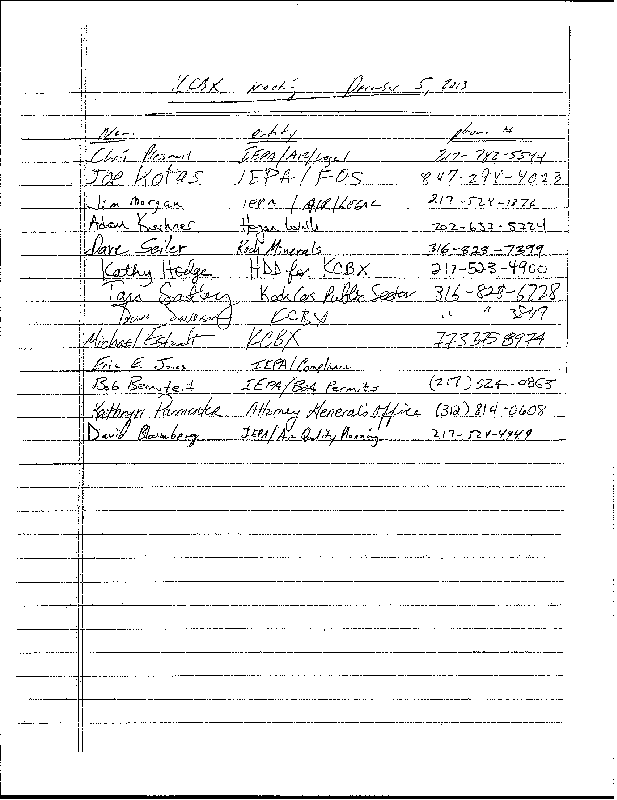 KCBX Meeting December 5, 2013
Name entity phone #
Chris IEPA/Air/Legal 217-782-5544
Joe Kotas IEPA / FOS 847-294-4023
Jim Morgan IEPA / AIR/LEGAL 217-524-1876
Adam Kushner Hogan Lovells 202-637-5724
Dave Seiler Koch Minerals 316-828-7399
Kathy Hodge HDD for KCBX 217-523-4900
Koch Cos Public Sector 316-828-6728
KCBX " " 3847
Michael Estadt KCBX 773 375 8974
Eric E. Jones IEPA/Compliance
Bob Bernoteit IEPA/BOA Permits (217) 524-0863
Kathryn Pamenter Attorney General's Office (312) 814-0608
David Bloomberg IEPA/Air Quality Planning 217-524-4949